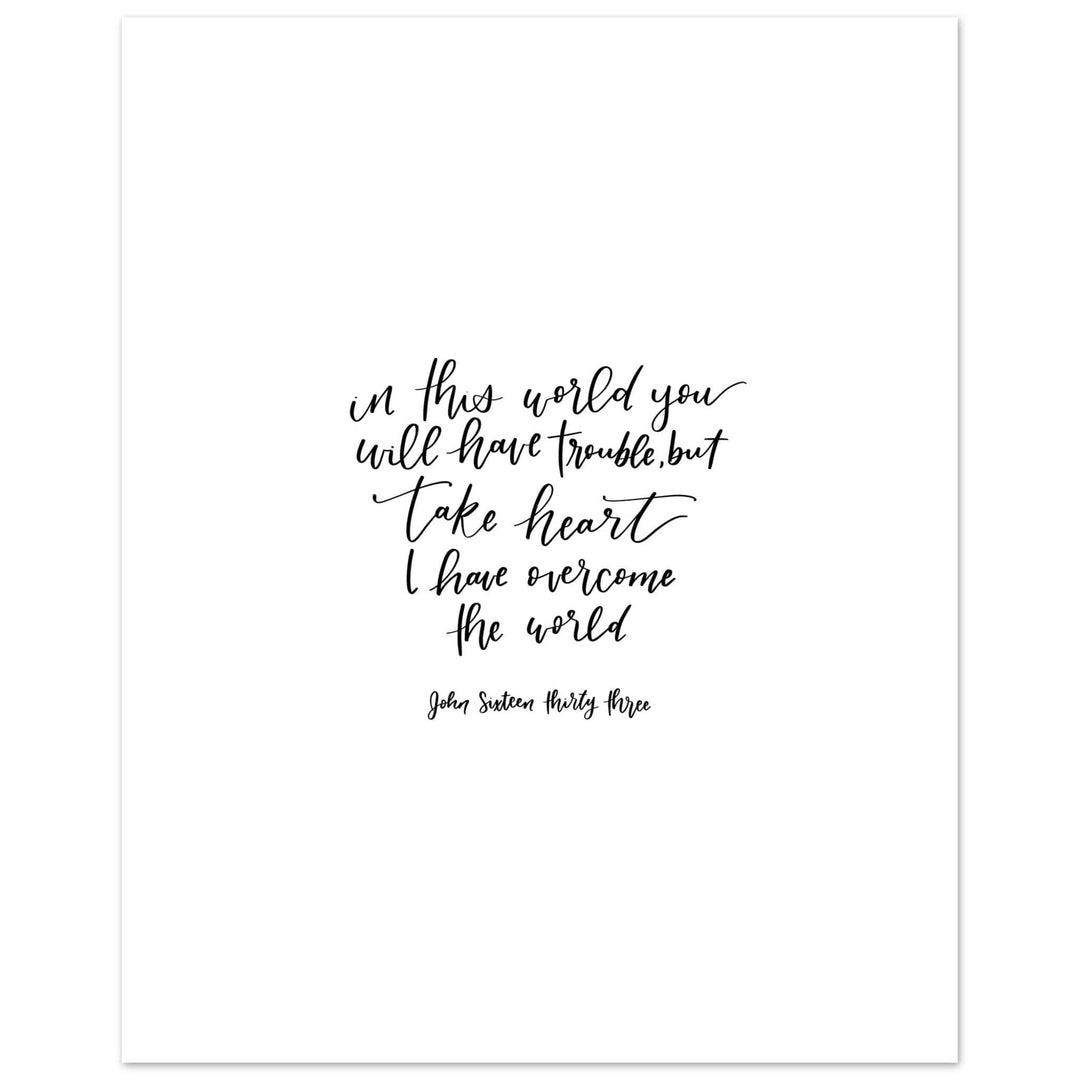 in this world you
will have trouble, but
take heart
I have overcome
the world
John Sixteen thirty three